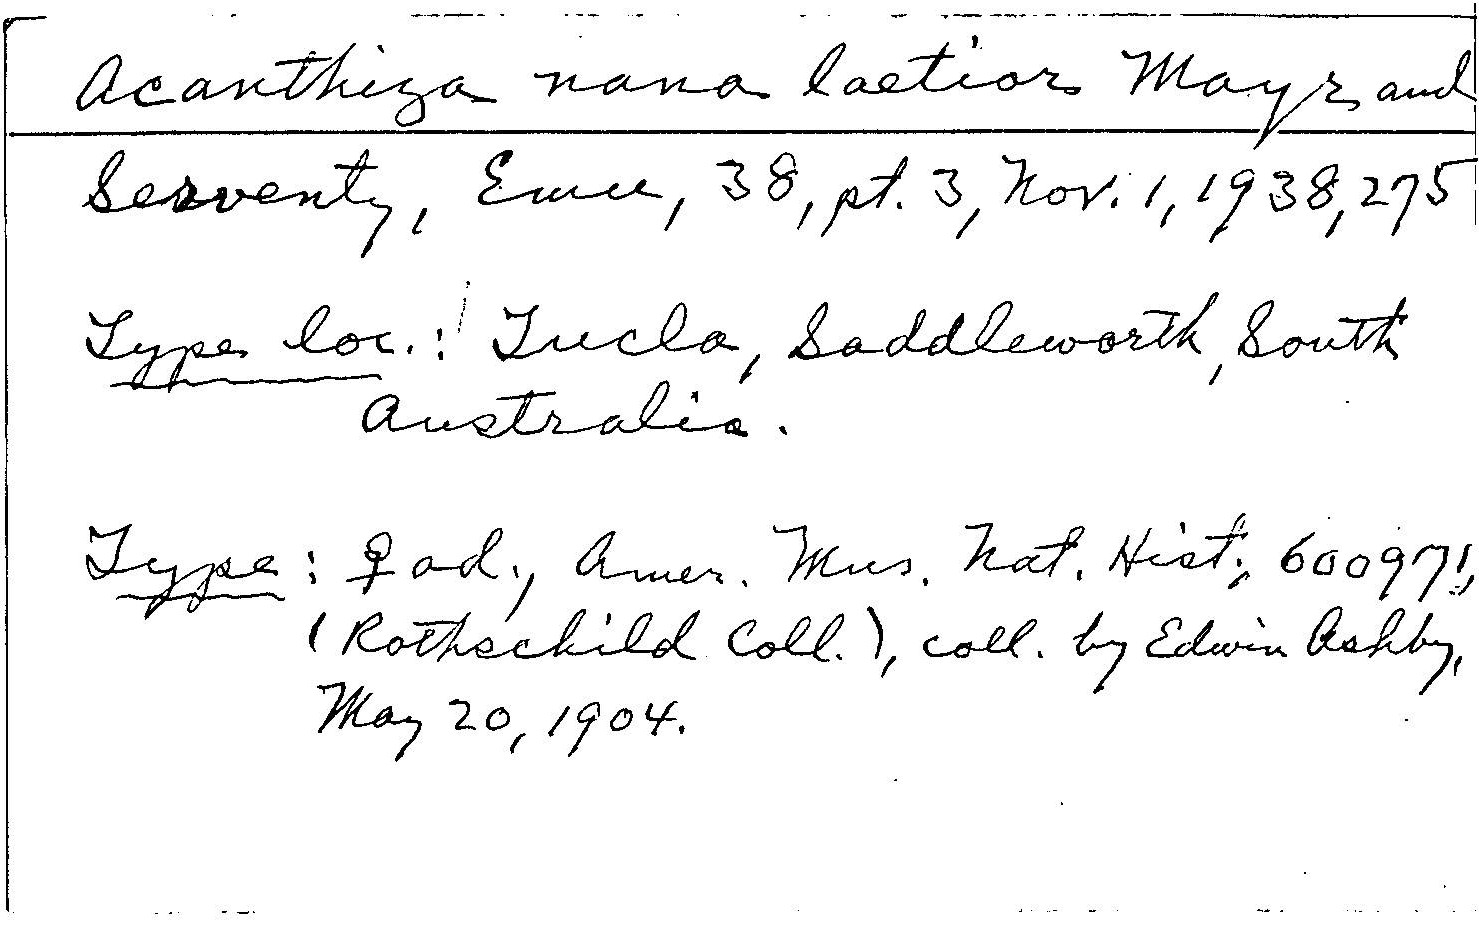 Acanthiza nana laetior Mayr and
Serventy, Emu, 38, pt. 3, Nov. 1, 1938, 275
Type loc.: Tucla, Saddleworth, South
Australia.
Type: ♀ ad., Amer. Mus. Nat. Hist., 600971,
(Rothschild Coll.), coll. by Edwin Ashby,
May 20, 1904.